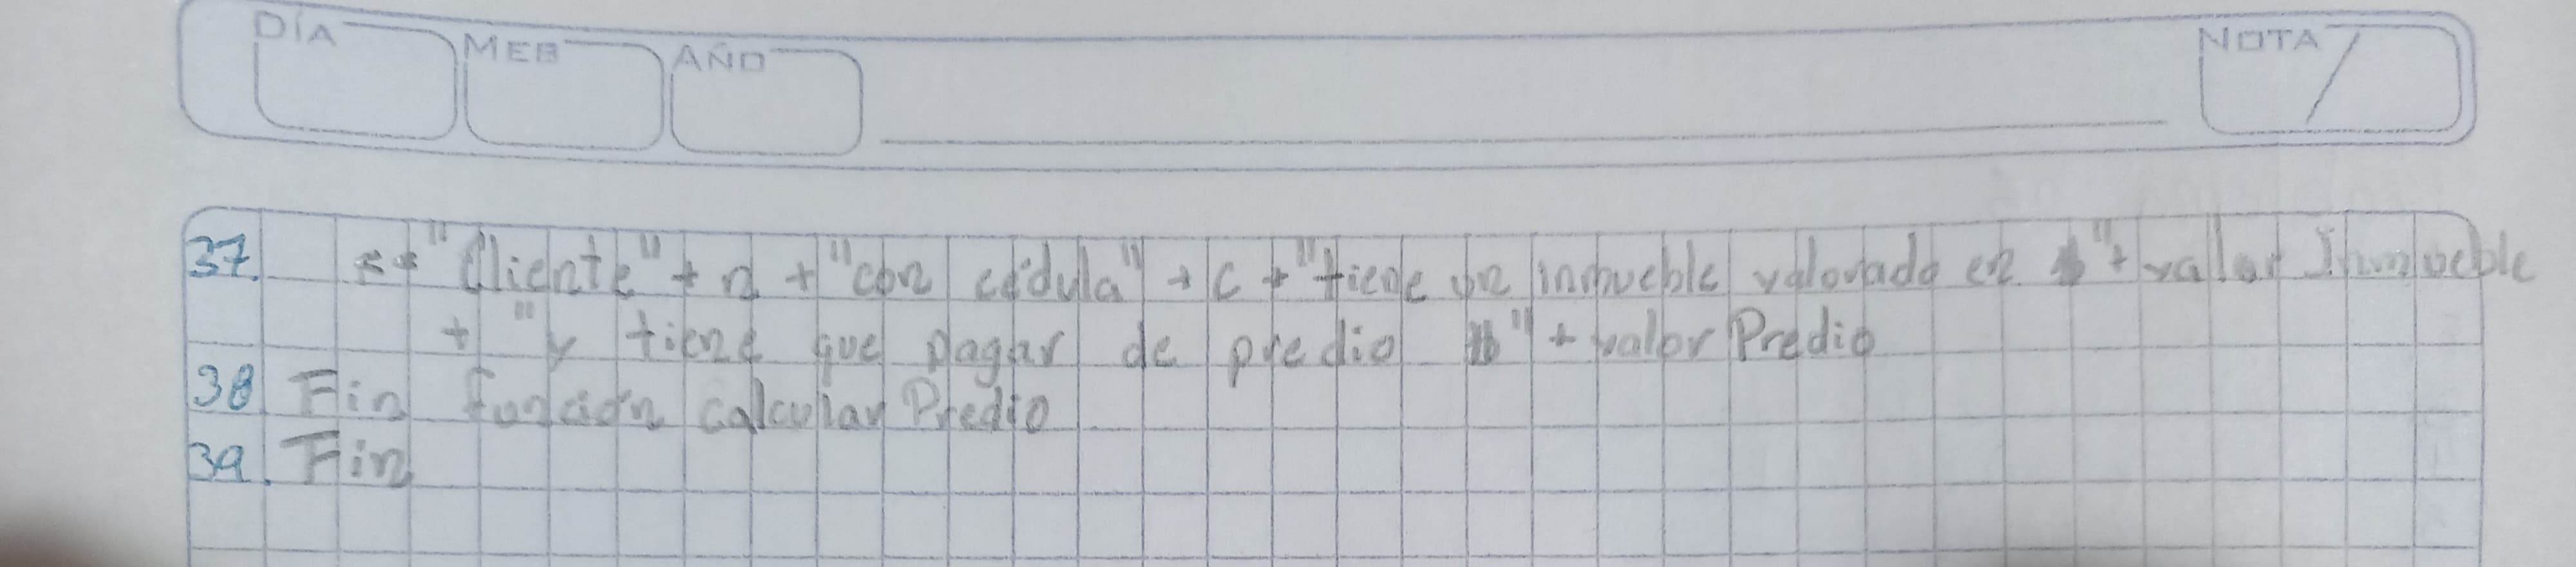 DÍA MES AÑO NOTA
37. << "Cliente" + n + "con cédula" + c + "tiene un inmueble valorado en $" + valor Inmueble
+ "y tiene que pagar de predio $" + valor Predio
38 Fin función calcular Predio
39. Fin